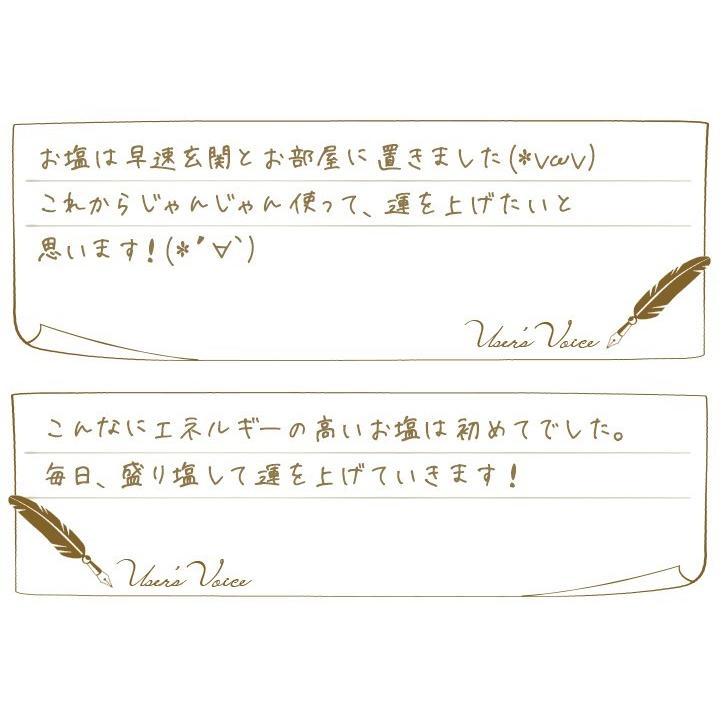 お塩は早速玄関とお部屋に置きました(*vωv)
これからじゃんじゃん使って、運を上げたいと
思います!(*´∀`)
User's Voice
こんなにエネルギーの高いお塩は初めてでした。
毎日、盛り塩して運を上げていきます!
User's Voice